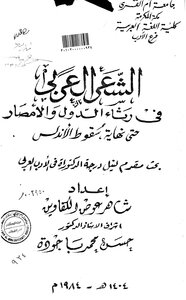 جامعة أم القرى
مكة المكرمة
كلية اللغة العربية
فرع الأدب
الشعر العربي
في رثاء الدول والأمصار
حتى نهاية سقوط الأندلس
بحث مقدم لنيل درجة الدكتوراة في الأدب العربي
إعداد
شاهر عوض الكفاوين
إشراف الأستاذ الدكتور
حسن محمد باجودة
١٤٠٤ هـ - ١٩٨٤ م